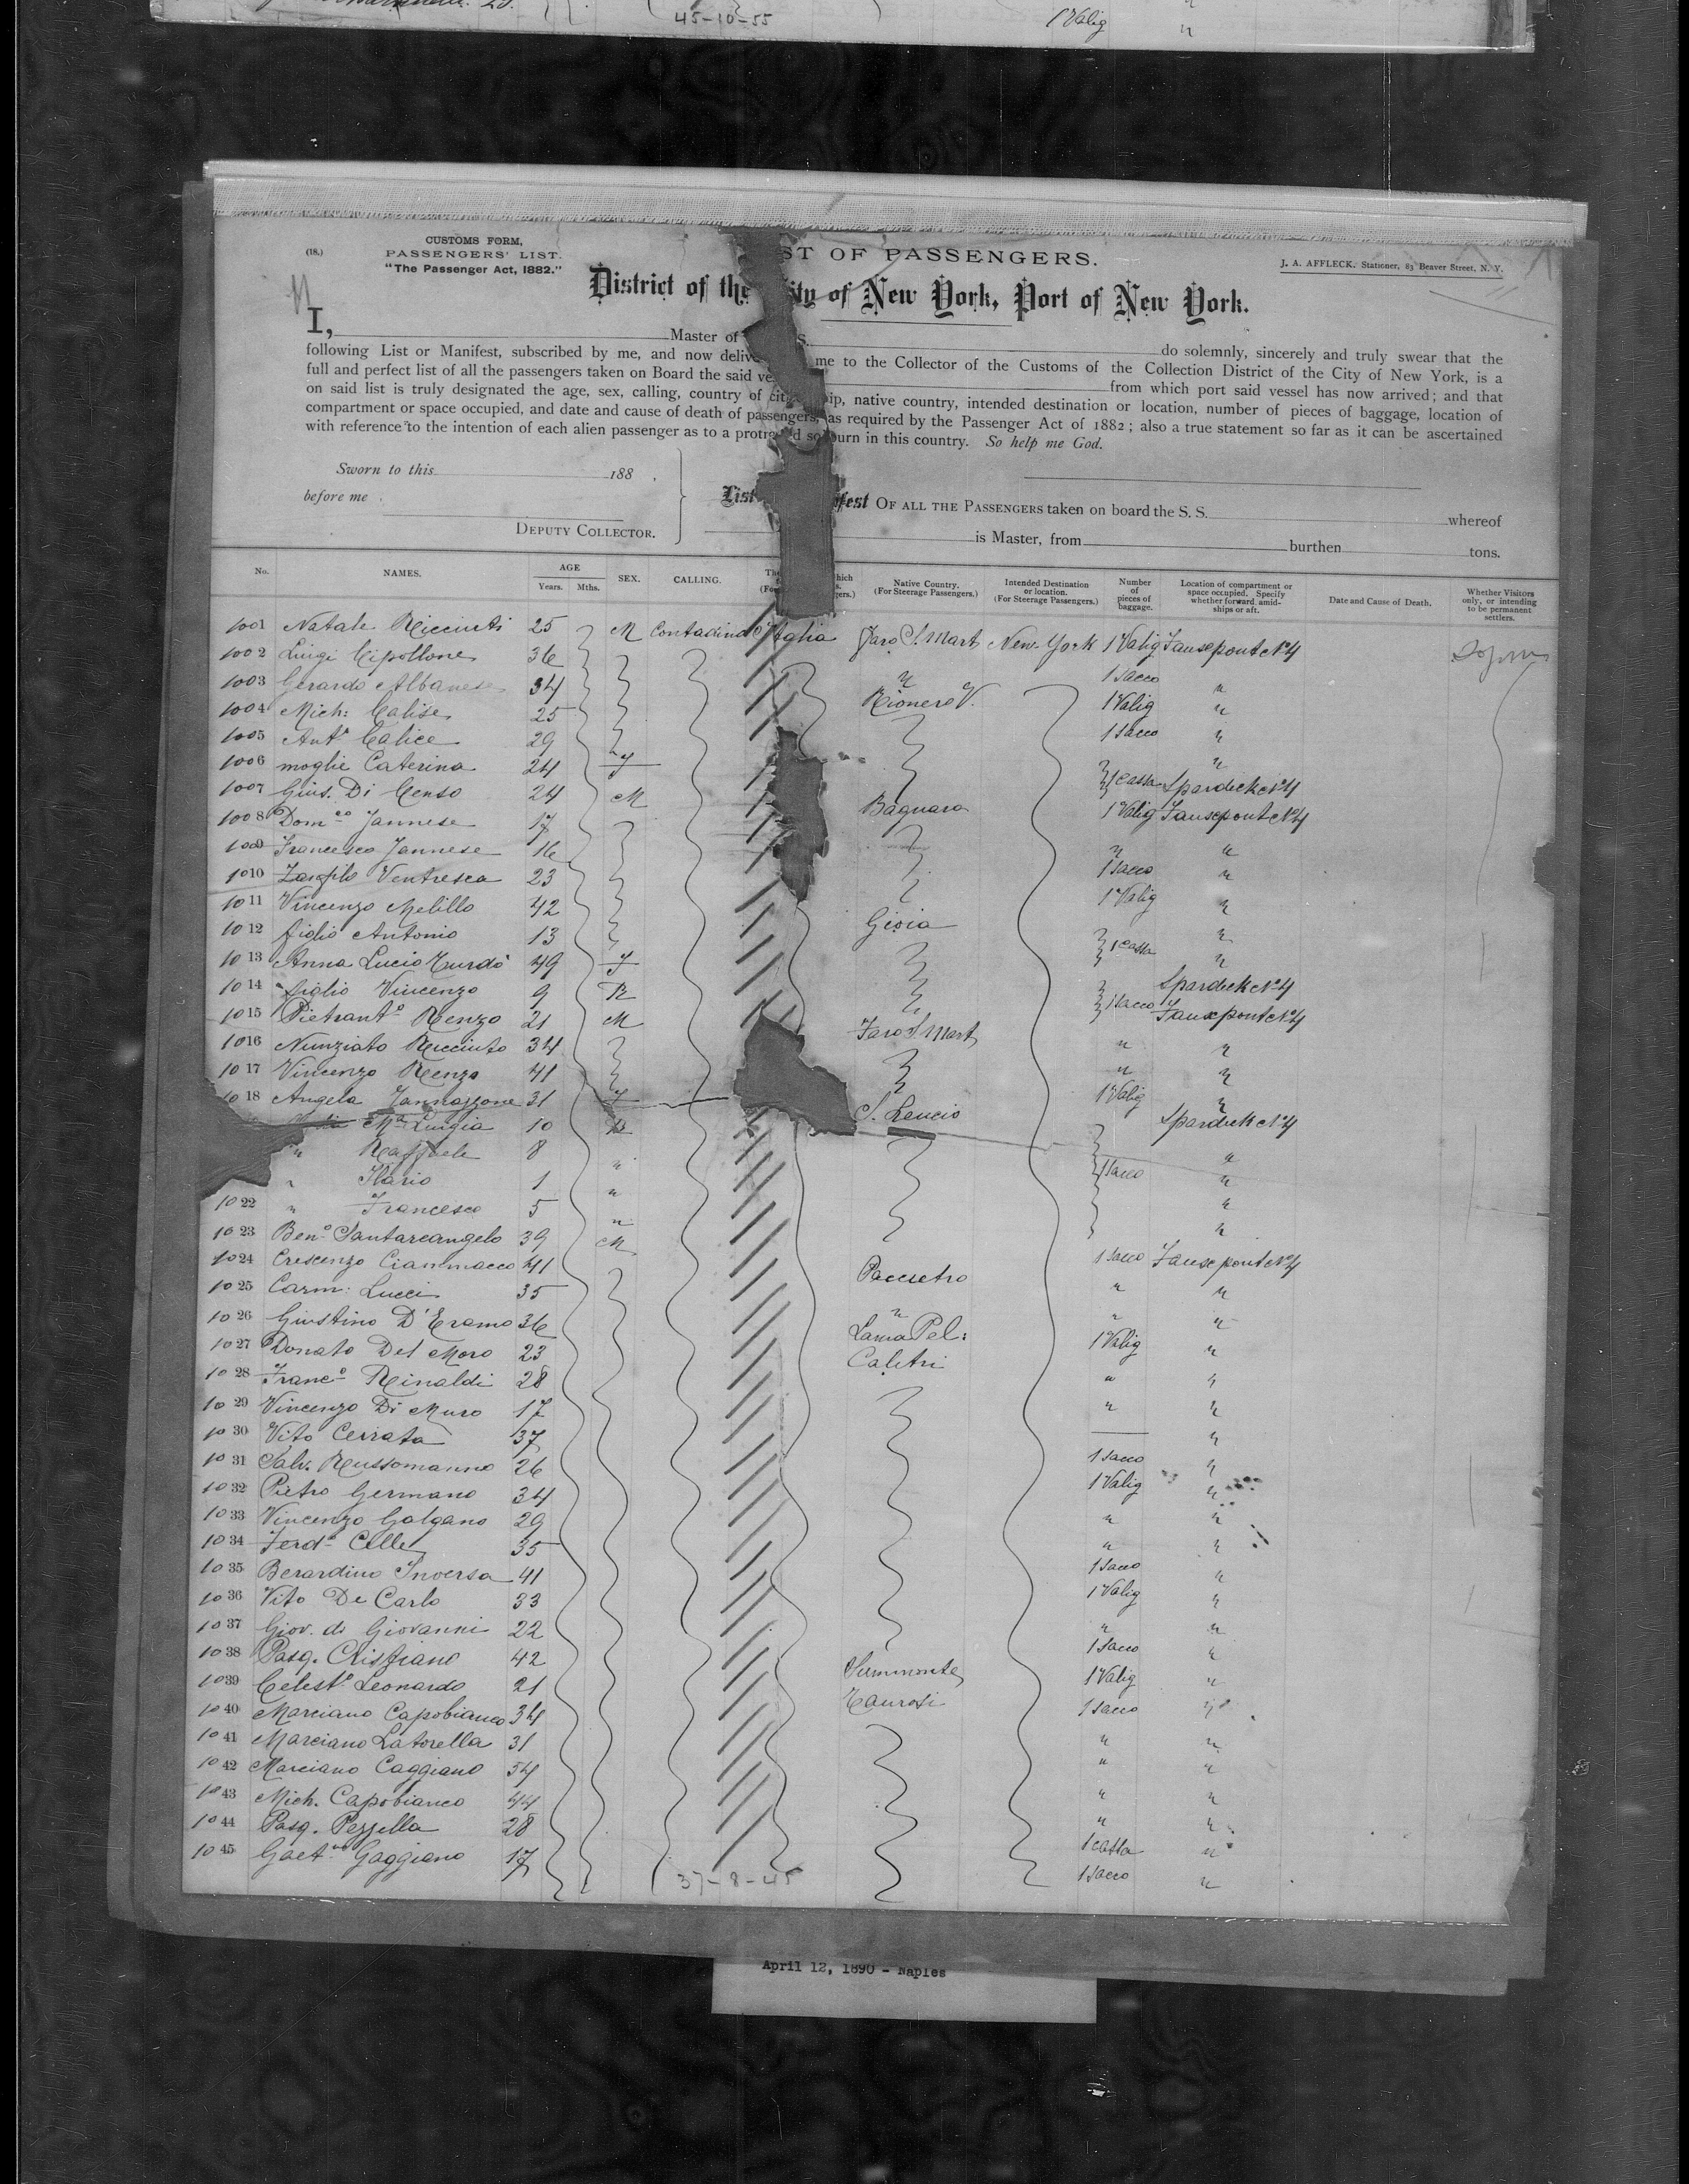 45-10-55
1 Valig
"
(18.)
CUSTOMS FORM,
PASSENGERS' LIST.
"The Passenger Act, 1882."
ST OF PASSENGERS.
J. A. AFFLECK, Stationer, 83 Beaver Street, N. Y.
District of the City of New York, Port of New York.
I, Master of S. do solemnly, sincerely and truly swear that the
following List or Manifest, subscribed by me, and now delive me to the Collector of the Customs of the Collection District of the City of New York, is a
full and perfect list of all the passengers taken on Board the said ve from which port said vessel has now arrived; and that
on said list is truly designated the age, sex, calling, country of citi ip, native country, intended destination or location, number of pieces of baggage, location of
compartment or space occupied, and date and cause of death of passengers, as required by the Passenger Act of 1882; also a true statement so far as it can be ascertained
with reference to the intention of each alien passenger as to a protra d sojourn in this country. So help me God.
Sworn to this 188 ,
before me
DEPUTY COLLECTOR.
List fest OF ALL THE PASSENGERS taken on board the S. S. whereof
is Master, from burthen tons.
No. NAMES. AGE Years. Mths. SEX. CALLING. Native Country. (For Steerage Passengers.) Intended Destination or location. (For Steerage Passengers.) Number of pieces of baggage. Location of compartment or space occupied. Specify whether forward, amidships or aft. Date and Cause of Death. Whether Visitors only, or intending to be permanent settlers.
1001 Natale Ricciuti 25 M Contadino Italia Faro S. Mart New-York 1 Valig Fausepont N4
1002 Luigi Cipollone 36 " 1 Sacco "
1003 Gerardo Albanese 34 Rionero V. 1 Valig "
1004 Mich: Calise 25 1 Sacco "
1005 Antº Calice 29 "
1006 moglie Caterina 24 F 1 Cassa Spardeck N4
1007 Gius. Di Censo 24 M Bagnara 1 Valig Fausepont N4
1008 Domco Jannese 17 "
1009 Francesco Jannese 16 1 Sacco "
1010 Ventresca 23 1 Valig "
1011 Vincenzo Melillo 42 Gioia "
1012 figlio Antonio 13 1 Cassa "
1013 Anna Lucia Turdò 49 F Spardeck N4
1014 figlio Vincenzo 9 R 1 Sacco Fausepont N4
1015 Pietrantº Renzo 21 M Faro S. Mart " "
1016 Nunziato Ricciuto 34 " "
1017 Vincenzo Renzo 41 1 Valig "
1018 Angela Jannazzone 31 F S. Leucio Spardeck N4
Ma Luigia 10 R "
" Raffaele 8 " 1 Sacco "
" Ilario 1 " "
1022 " Francesco 5 " "
1023 Benº Santarcangelo 39 M 1 Sacco Fausepont N4
1024 Crescenzo Ciammacco 41 Paccetro " "
1025 Carm: Lucci 35 " " "
1026 Giustino D'Eramo 36 Lama Pel: 1 Valig "
1027 Donato Del Moro 23 Calitri " "
1028 Francº Rinaldi 28 " "
1029 Vincenzo Di Muro 17 "
1030 Vito Cerrata 37 1 Sacco "
1031 Salv. Russomanno 26 1 Valig "
1032 Pietro Germano 34 " "
1033 Vincenzo Galgano 29 " "
1034 Ferdº Celle 35 1 Sacco "
1035 Berardino Inversa 41 1 Valig "
1036 Vito De Carlo 33 " "
1037 Giov. di Giovanni 22 1 Sacco "
1038 Pasq. Cristiano 42 Summonte 1 Valig "
1039 Celestº Leonardo 21 Taurasi 1 Sacco "
1040 Marciano Capobianco 34 " "
1041 Marciano Latorella 31 " "
1042 Marciano Caggiano 54 " "
1043 Mich. Capobianco 44 " "
1044 Pasq. Pezzella 28 1 Cassa "
1045 Gaetno Gaggiano 17 1 Sacco "
37-8-45
April 12, 1890 - Naples